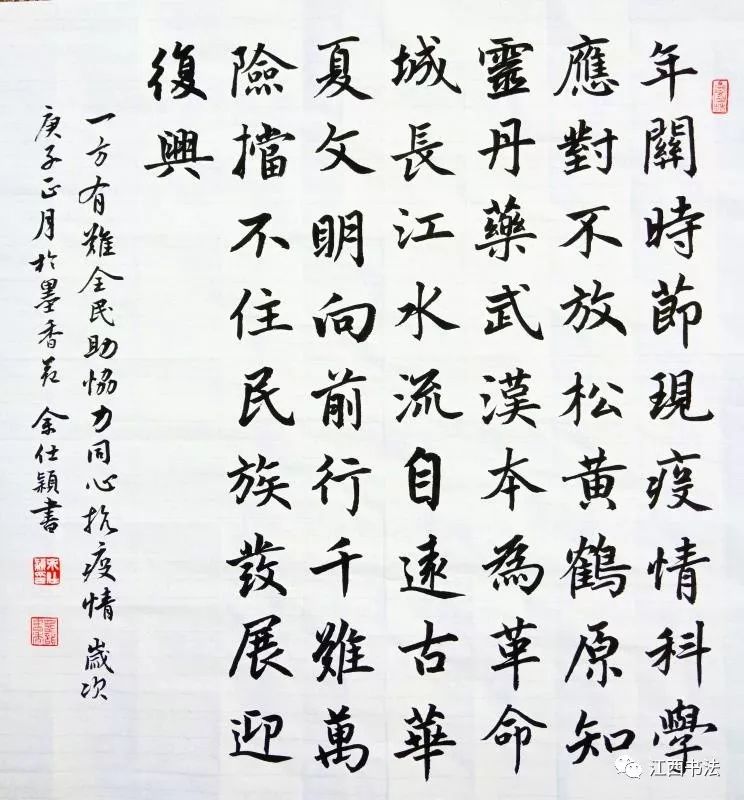 年關時節現疫情科學
應對不放松黄鶴原知
靈丹藥武漢本為革命
城長江水流自遠古華
夏文明向前行千難萬
險擋不住民族發展迎
復興
一方有難全民助協力同心抗疫情 歲次
庚子正月於墨香苑 余仕穎書
江西书法